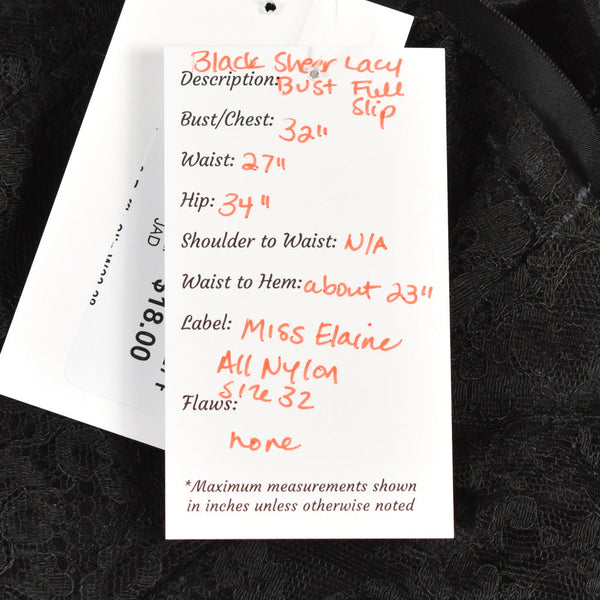 Black Sheer Lacy
Description: Bust Full
Slip
Bust/Chest: 32"
Waist: 27"
Hip: 34"
Shoulder to Waist: N/A
Waist to Hem: about 23"
Label: Miss Elaine
All Nylon
Size 32
Flaws:
none
*Maximum measurements shown
in inches unless otherwise noted
JAD
$18.00